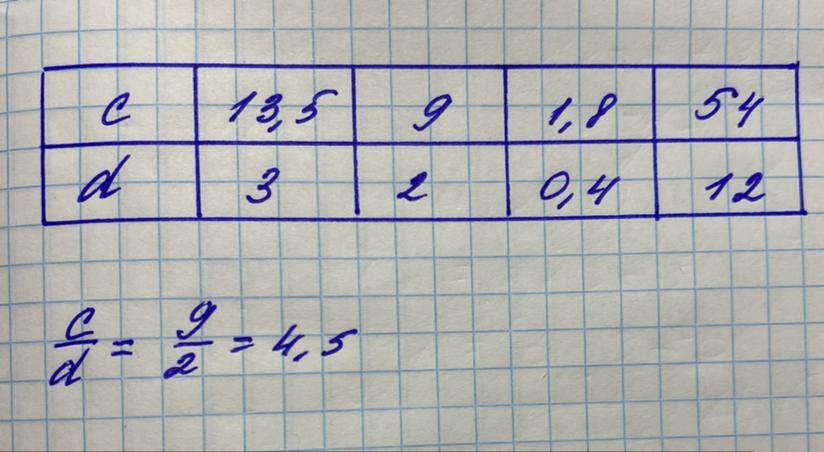 c 13,5 9 1,8 54
d 3 2 0,4 12
c/d = 9/2 = 4,5